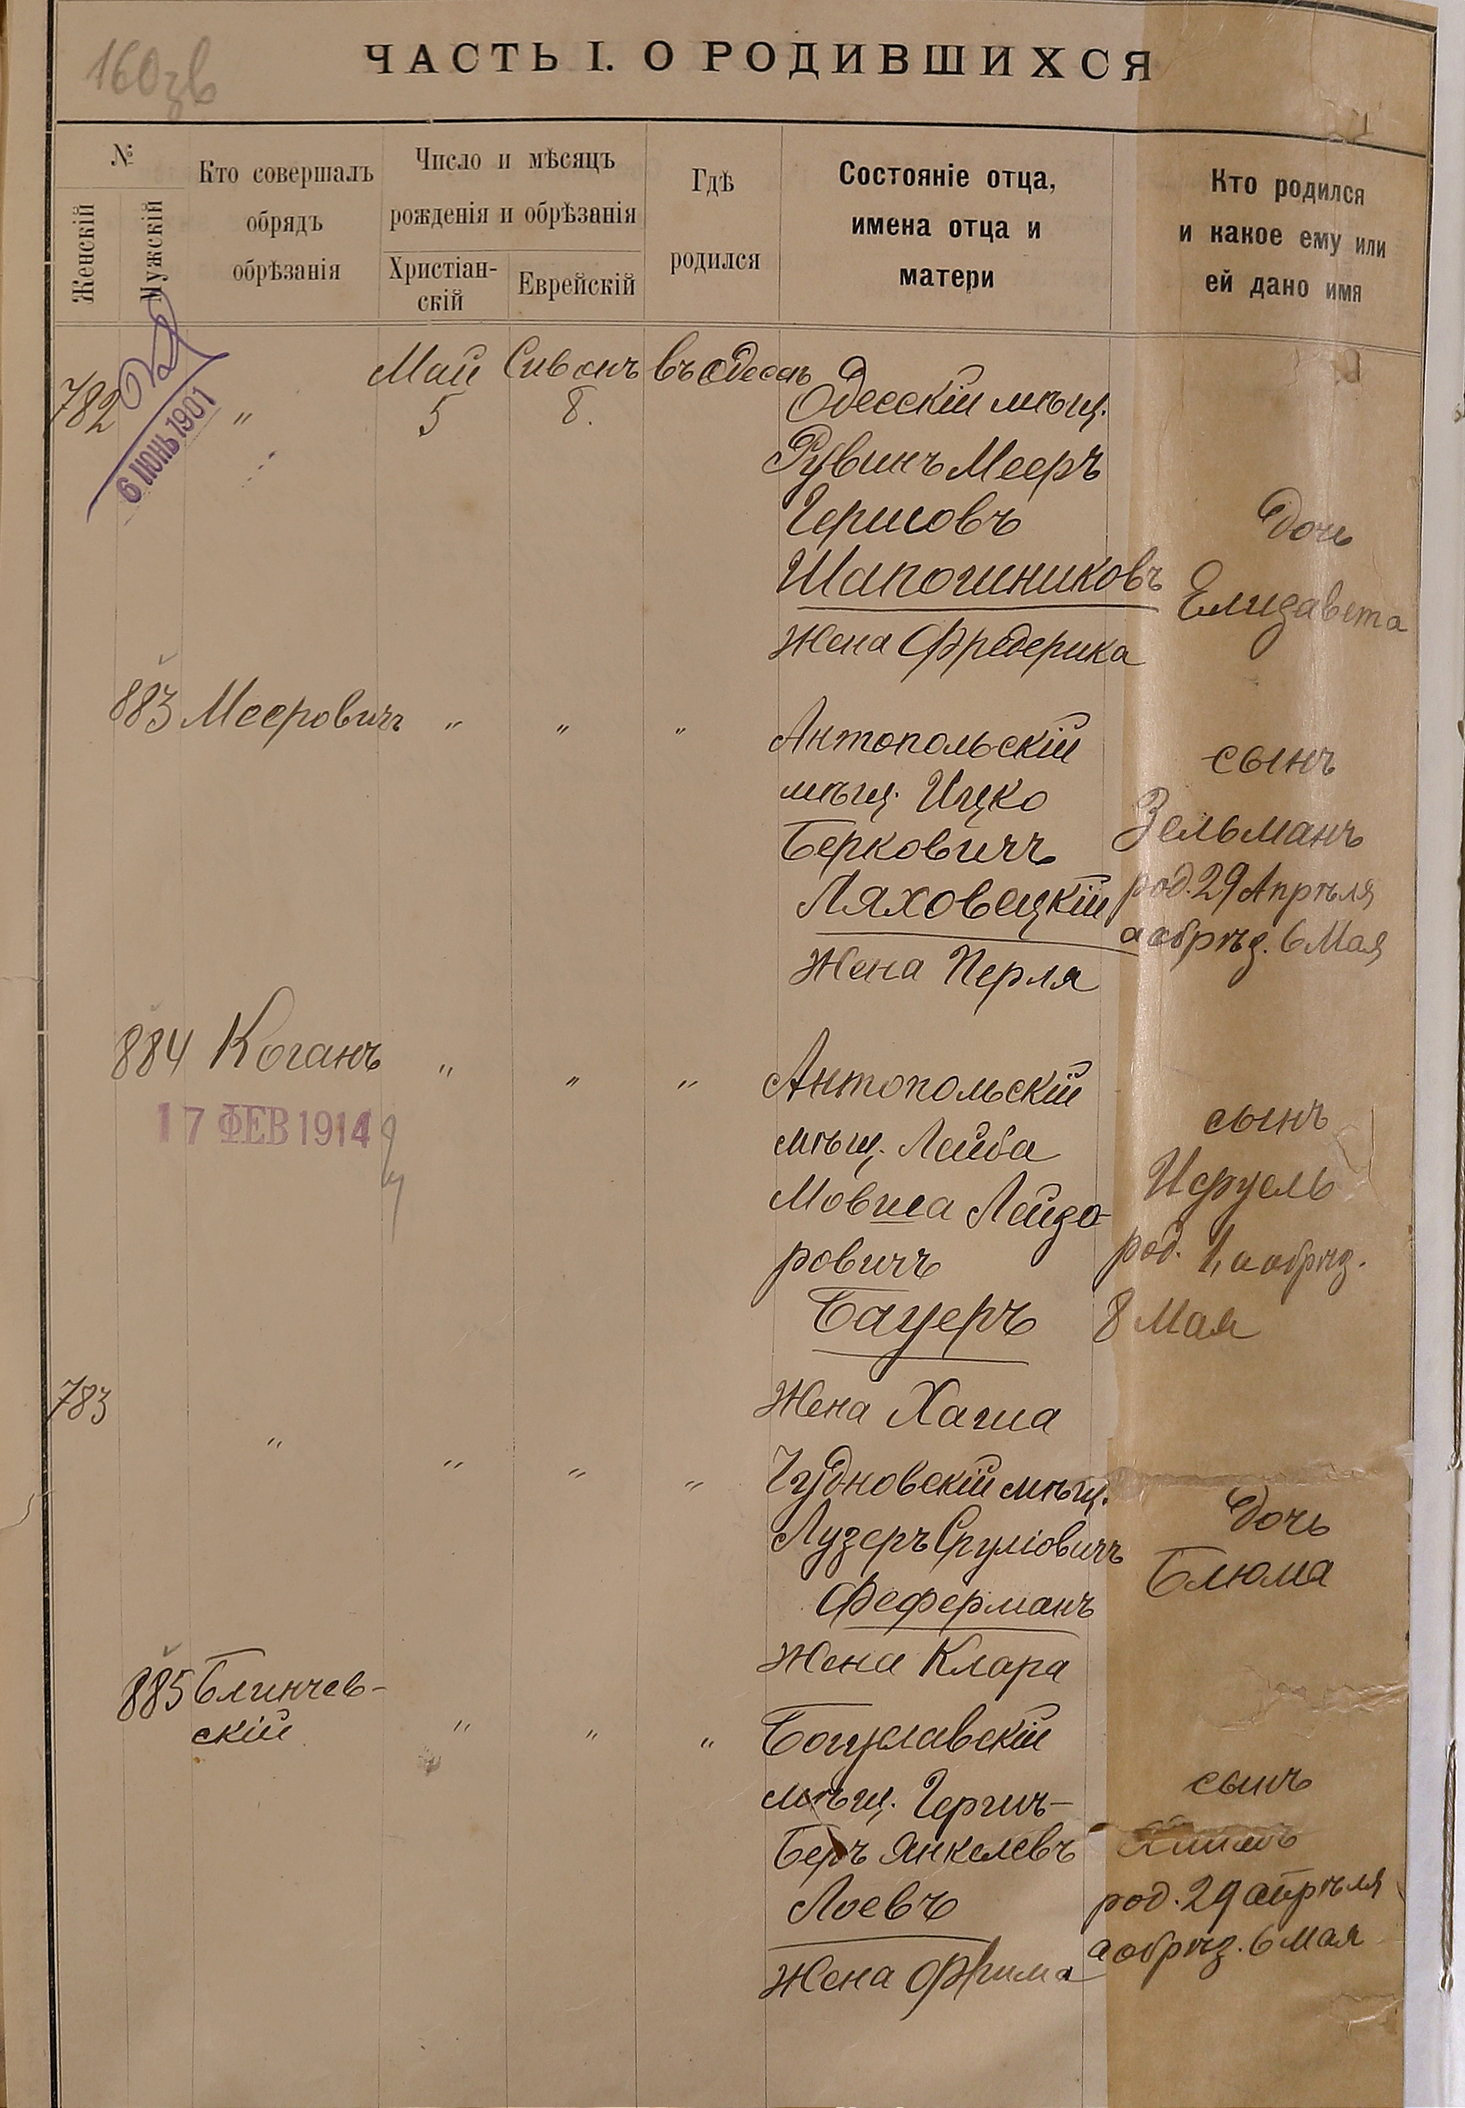 160
ЧАСТЬ I. О РОДИВШИХСЯ
№
Женскій
Мужскій
Кто совершалъ
обрядъ
обрѣзанія
Число и мѣсяцъ
рожденія и обрѣзанія
Христіан-
скій
Еврейскій
Гдѣ
родился
Состояніе отца,
имена отца и
матери
Кто родился
и какое ему или
ей дано имя
782
6 ІЮНЬ 1901
"
Май
5
Сивонъ
8.
въ Одессѣ
Одесскій мѣщ.
Рувинъ Мееръ
Гершовъ
Шапошниковъ
Жена Фредерика
дочь
Елизавета
883 Мееровичъ " " "
Антопольскій
мѣщ. Ицко
Берковичъ
Ляховецкій
Жена Перля
сынъ
Зельманъ
род. 29 Апрѣля
а обрѣз. 6 Мая
884 Коганъ " " "
17 ФЕВ 1914
Антопольскій
мѣщ. Лейба
Мовша Лейзо-
ровичъ
Бауеръ
Жена Хаша
сынъ
род. 1, а обрѣз.
8 Мая
783
" " " "
Чудновскій мѣщ.
Лузеръ Сруліовичъ
Феферманъ
Жена Клара
дочь
Блюма
885 Блинчев-
скій " " "
Богуславскій
мѣщ. Гершъ-
Беръ Янкелевъ
Лоевъ
Жена Фрима
сынъ
род. 29 апрѣля
а обрѣз. 6 Мая